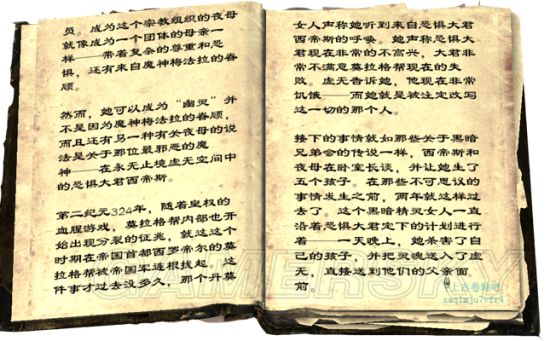 员。成为这个宗教组织的夜母
就像成为一个团体的母亲一
样——带着复杂的尊重和恐
惧，还有来自魔神梅法拉的眷
顾。
然而，她可以成为“幽灵”并
不是因为魔神梅法拉的眷顾，
而且还有另一种有关夜母的说
法是关于那位最邪恶的魔
神——在永无止境虚无空间中
的恐惧大君西帝斯。
第二纪元324年，随着皇权的
血腥游戏，莫拉格帮内部也开
始出现分裂的征兆，就这这个
时期在帝国首都西罗帝尔的莫
拉格帮被帝国军连根拔起。这
件事才过去没多久，那个丹莫
女人声称她听到来自恐惧大君
西帝斯的呼唤。她声称恐惧大
君现在非常的不高兴，大君非
常不满意莫拉格帮现在的失
败。虚无告诉她，他现在非常
饥饿——而她就是被注定改写
这一切的那个人。
接下的事情就如那些关于黑暗
兄弟会的传说一样，西帝斯和
夜母在卧室长谈，并让她生了
五个孩子。在那些不可思议的
事情发生之前，两年就这样过
去了。这个黑暗精灵女人一直
沿着恐惧大君定下的计划进行
着——一天晚上，她杀害了自
己的孩子，并把灵魂送入了虚
无，直接送到他们的父亲面
前。
GAMERSKY
@上古卷轴吧
zaq1mju7vfr4